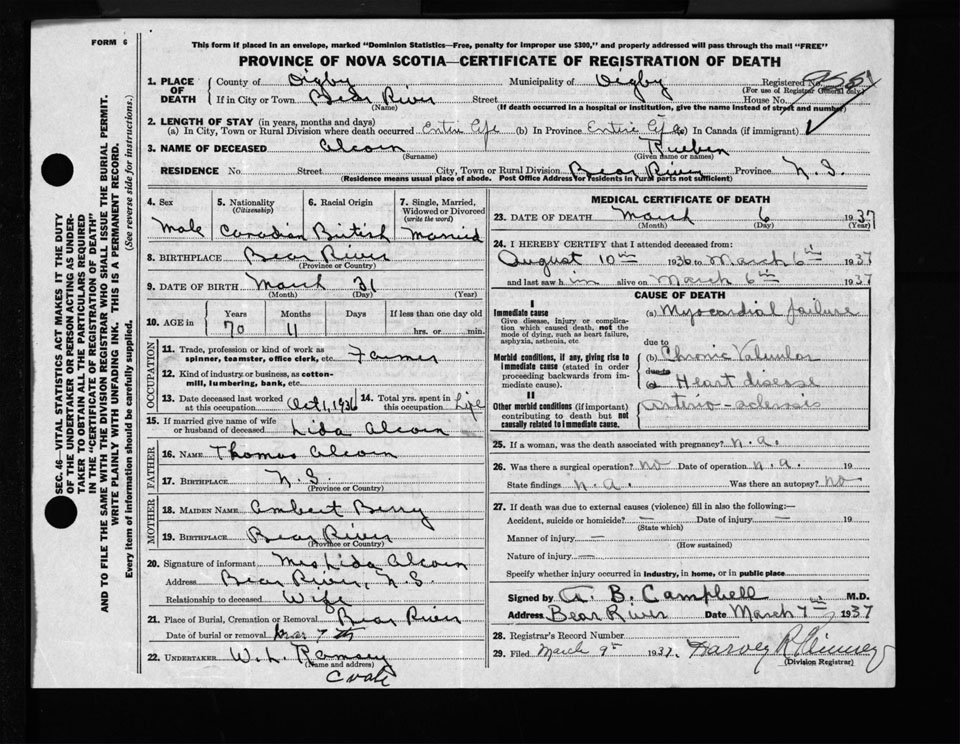 FORM 6
This form if placed in an envelope, marked "Dominion Statistics—Free, penalty for improper use $300," and properly addressed will pass through the mail "FREE"
PROVINCE OF NOVA SCOTIA—CERTIFICATE OF REGISTRATION OF DEATH
1. PLACE OF DEATH
County of Digby Municipality of Digby Registered No.
(For use of Registrar General only.)
If in City or Town Bear River Street House No.
(Name) (If death occurred in a hospital or institution, give the name instead of street and number)
2. LENGTH OF STAY (in years, months and days)
(a) In City, Town or Rural Division where death occurred Entire life (b) In Province Entire life (c) In Canada (if immigrant)
3. NAME OF DECEASED Alcorn Rueben
(Surname) (Given name or names)
RESIDENCE No. Street City, Town or Rural Division Bear River Province N.S.
(Residence means usual place of abode. Post Office Address for residents in rural parts not sufficient)
4. Sex
Male
5. Nationality
(Citizenship)
Canadian
6. Racial Origin
British
7. Single, Married, Widowed or Divorced
(write the word)
Married
8. BIRTHPLACE Bear River
(Province or Country)
9. DATE OF BIRTH March 31
(Month) (Day) (Year)
10. AGE in
Years Months Days If less than one day old
70 11 hrs. or min.
OCCUPATION
11. Trade, profession or kind of work as spinner, teamster, office clerk, etc. Farmer
12. Kind of industry or business, as cotton-mill, lumbering, bank, etc.
13. Date deceased last worked at this occupation Oct 1, 1936
14. Total yrs. spent in this occupation Life
15. If married give name of wife or husband of deceased Lida Alcorn
FATHER
16. NAME Thomas Alcorn
17. BIRTHPLACE N.S.
(Province or Country)
MOTHER
18. MAIDEN NAME Ambert Berry
19. BIRTHPLACE Bear River
(Province or Country)
20. Signature of informant Mrs Lida Alcorn
Address Bear River, N.S.
Relationship to deceased Wife
21. Place of Burial, Cremation or Removal Bear River
Date of burial or removal Mar 7th
22. UNDERTAKER W. L. Ramsey
(Name and address)
MEDICAL CERTIFICATE OF DEATH
23. DATE OF DEATH March 6 1937
(Month) (Day) (Year)
24. I HEREBY CERTIFY that I attended deceased from:
August 10th 1936 to March 6th 1937
and last saw him alive on March 6th 1937
CAUSE OF DEATH
I
Immediate cause
Give disease, injury or complication which caused death, not the mode of dying, such as heart failure, asphyxia, asthenia, etc
(a) Myocardial failure
due to
Morbid conditions, if any, giving rise to immediate cause (stated in order proceeding backwards from immediate cause).
(b) Chronic Valvular
due to
Heart disease
II
Other morbid conditions (if important) contributing to death but not causally related to immediate cause.
arterio-sclerosis
25. If a woman, was the death associated with pregnancy? n.a.
26. Was there a surgical operation? no Date of operation n.a. 19
State findings n.a. Was there an autopsy? no
27. If death was due to external causes (violence) fill in also the following:—
Accident, suicide or homicide? — Date of injury — 19
(State which)
Manner of injury —
(How sustained)
Nature of injury —
Specify whether injury occurred in industry, in home, or in public place
Signed by A. B. Campbell M.D.
Address Bear River Date March 7th 1937
28. Registrar's Record Number
29. Filed March 9th 1937. Harvey R
(Division Registrar)
SEC. 46—VITAL STATISTICS ACT MAKES IT THE DUTY OF THE UNDERTAKER OR PERSON ACTING AS UNDERTAKER TO OBTAIN ALL THE PARTICULARS REQUIRED IN THE "CERTIFICATE OF REGISTRATION OF DEATH"
AND TO FILE THE SAME WITH THE DIVISION REGISTRAR WHO SHALL ISSUE THE BURIAL PERMIT.
WRITE PLAINLY WITH UNFADING INK. THIS IS A PERMANENT RECORD.
Every item of information should be carefully supplied. (See reverse side for instructions.)